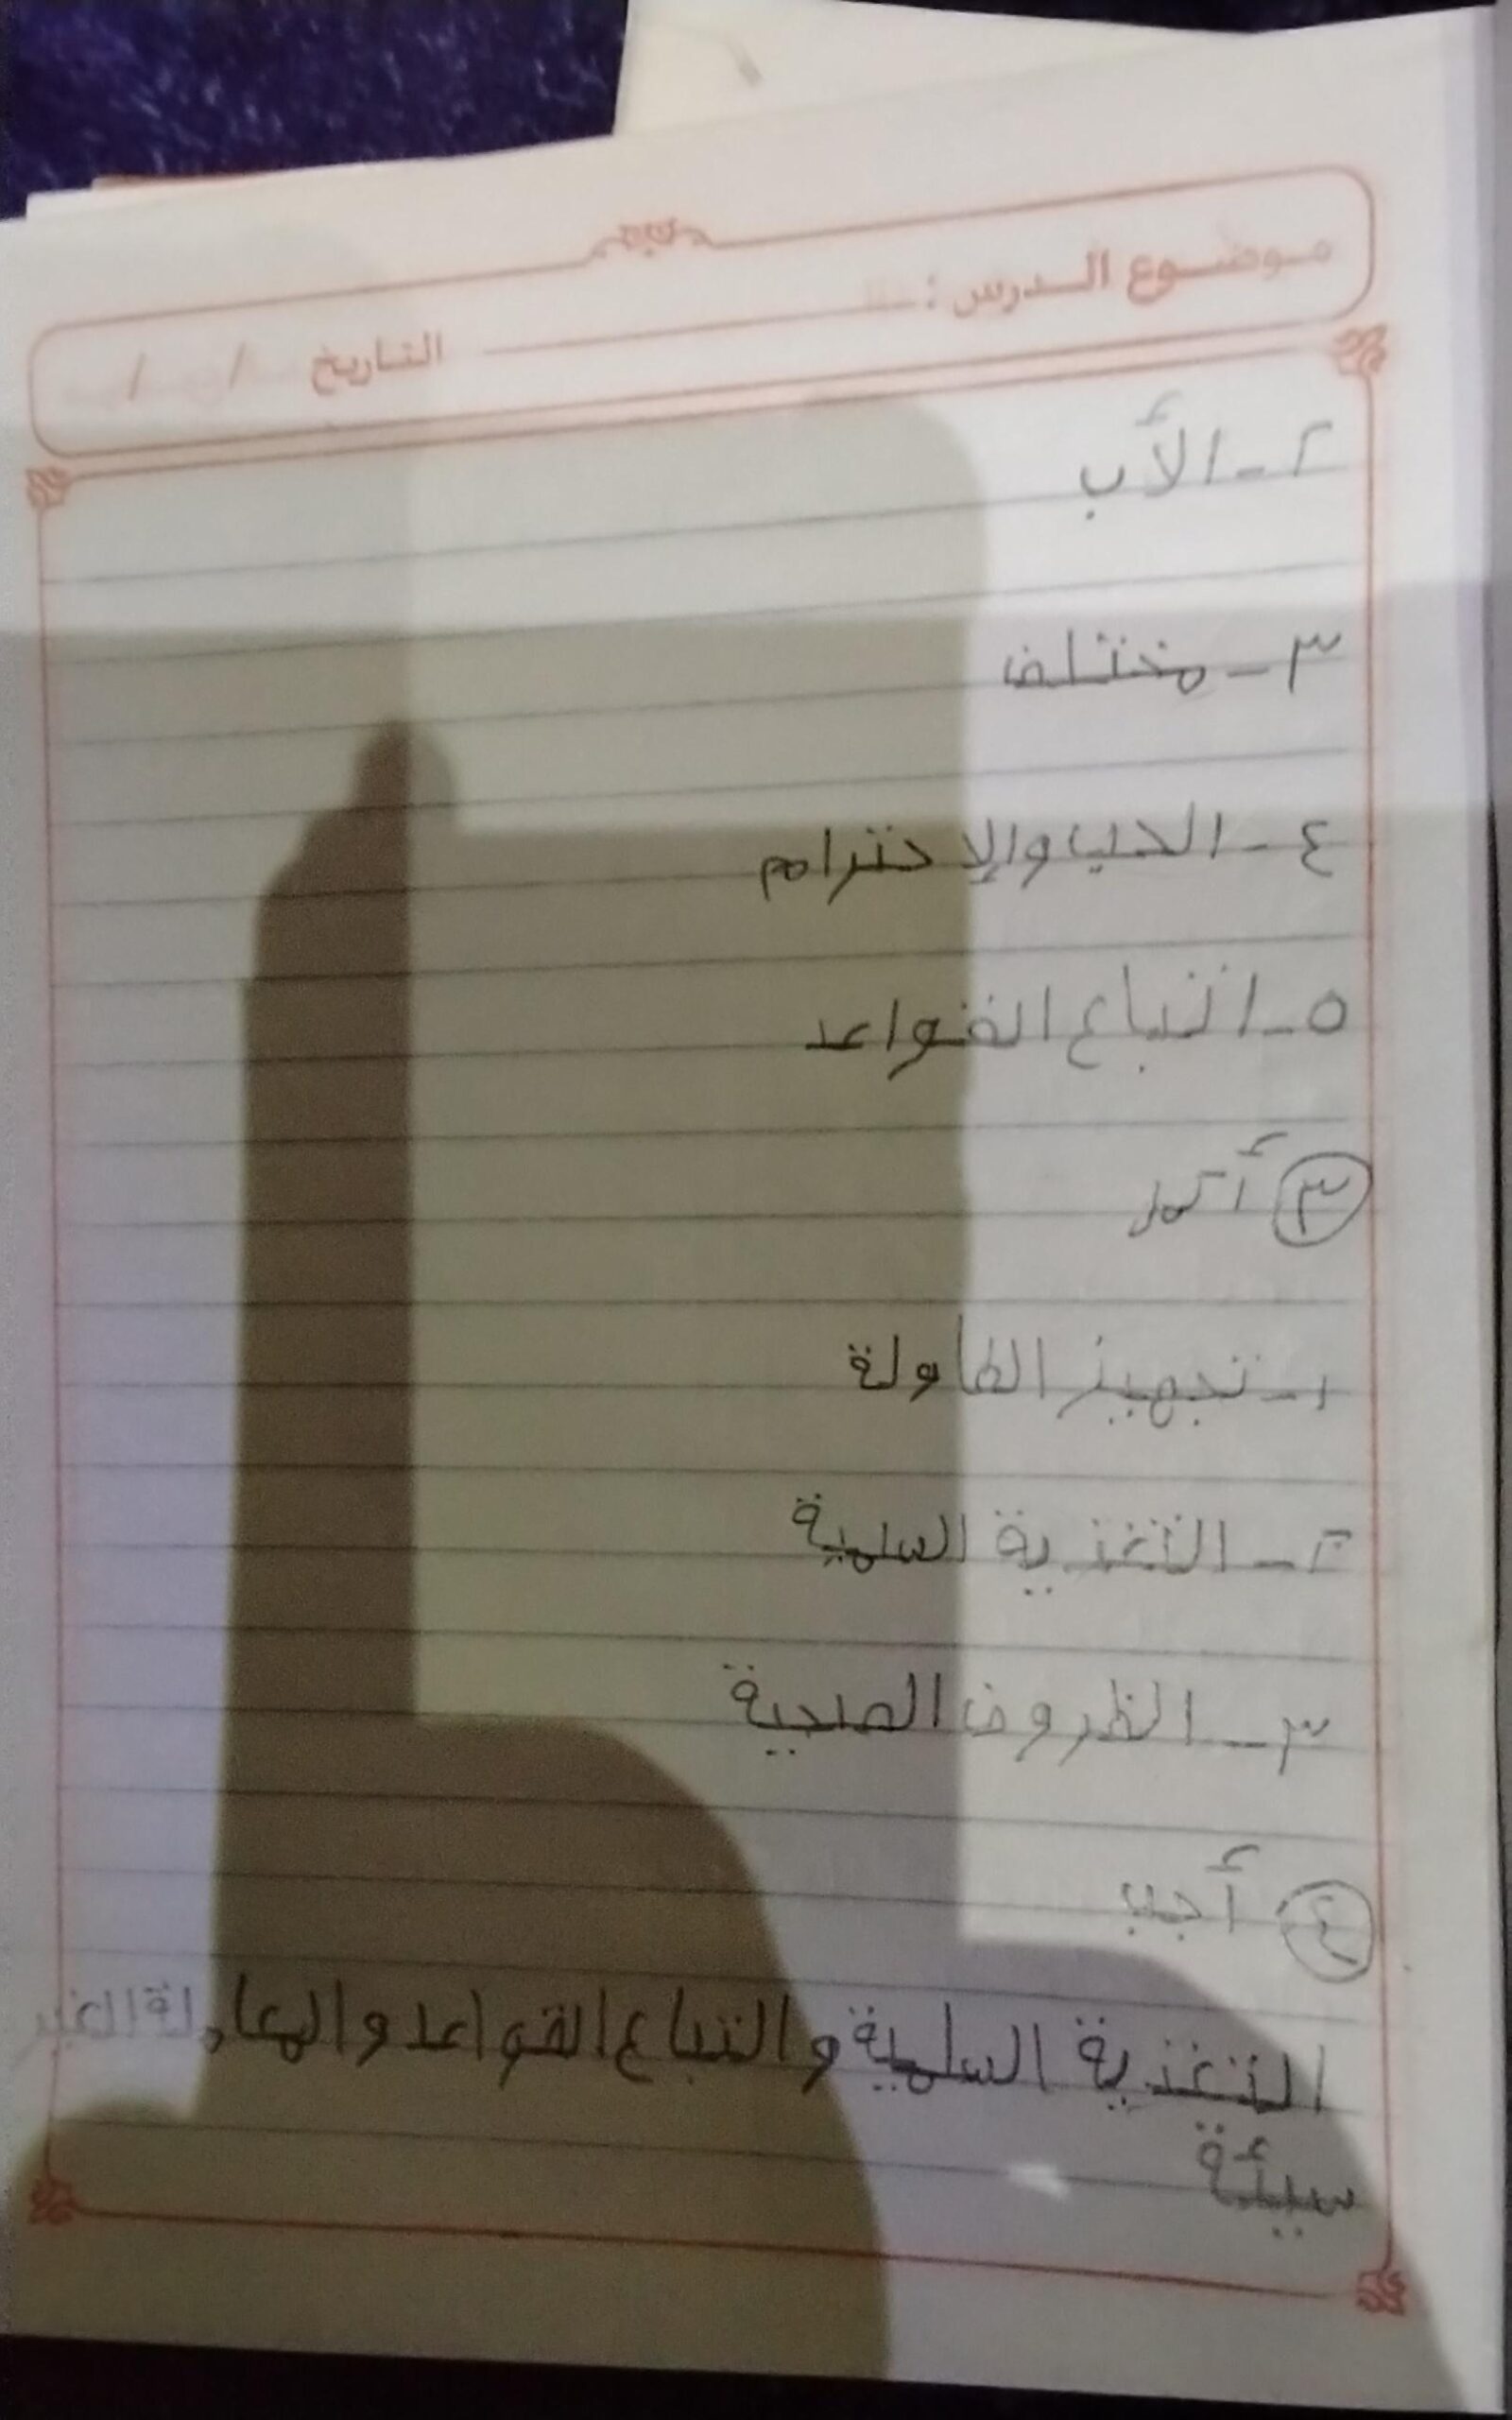 موضوع الدرس : التاريخ / /
٢ - الأب
٣ - مختلف
٤ - الحب والإحترام
٥ - اتباع القواعد
٣ أكمل
١ - تجهيز الطاولة
٢ - التغذية السلمية
٣ - الظروف الصحية
٤ أجب
التغذية السلمية والتباع القواعد والمعاملة الغير
سيئة